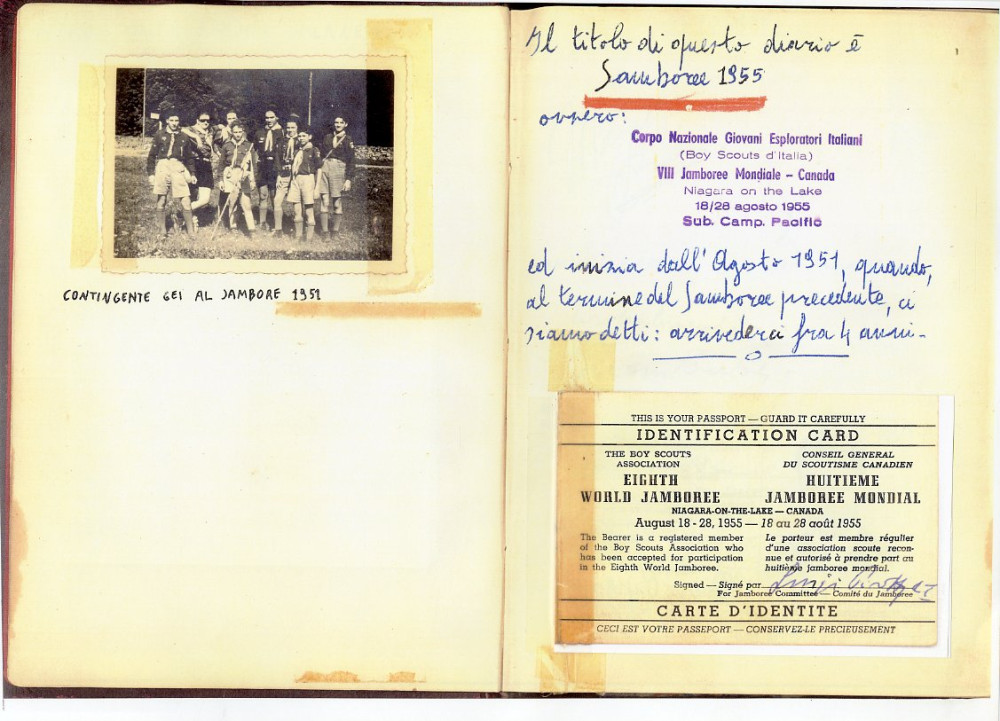 CONTINGENTE GEI AL JAMBORE 1951
Il titolo di questo diario è
Jamboree 1955
ovvero:
Corpo Nazionale Giovani Esploratori Italiani
(Boy Scouts d'Italia)
VIII Jamboree Mondiale – Canada
Niagara on the Lake
18/28 agosto 1955
Sub. Camp. Pacific
ed inizia dall'Agosto 1951, quando,
al termine del Jamboree precedente, ci
siamo detti: arrivederci fra 4 anni-
THIS IS YOUR PASSPORT — GUARD IT CAREFULLY
IDENTIFICATION CARD
THE BOY SCOUTS
ASSOCIATION
EIGHTH
WORLD JAMBOREE
CONSEIL GENERAL
DU SCOUTISME CANADIEN
HUITIEME
JAMBOREE MONDIAL
NIAGARA-ON-THE-LAKE — CANADA
August 18 - 28, 1955 — 18 au 28 août 1955
The Bearer is a registered member
of the Boy Scouts Association who
has been accepted for participation
in the Eighth World Jamboree.
Le porteur est membre régulier
d'une association scoute recon-
nue et autorisé à prendre part au
huitième jamboree mondial.
Signed — Signé par
For Jamboree Committee — Comité du Jamboree
CARTE D'IDENTITE
CECI EST VOTRE PASSEPORT — CONSERVEZ-LE PRECIEUSEMENT